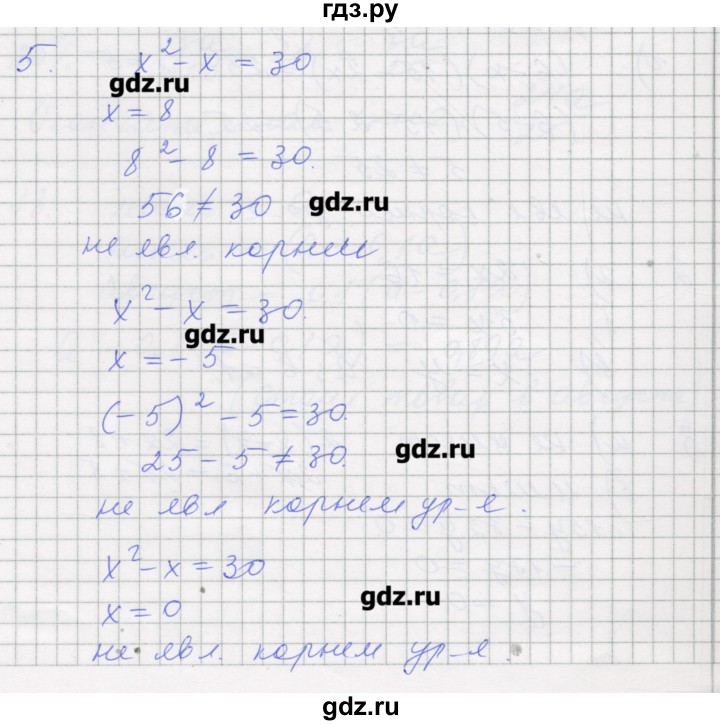 гдз.ру
5. x² - x = 30
gdz.ru
x = 8
8² - 8 = 30.
56 ≠ 30
gdz.ru
не явл. корнем
x² - x = 30.
gdz.ru
x = - 5
(-5)² - 5 = 30.
25 - 5 ≠ 30.
gdz.ru
не явл корнем ур-е.
x² - x = 30
x = 0
gdz.ru
не явл. корнем ур-е.
gdz.ru